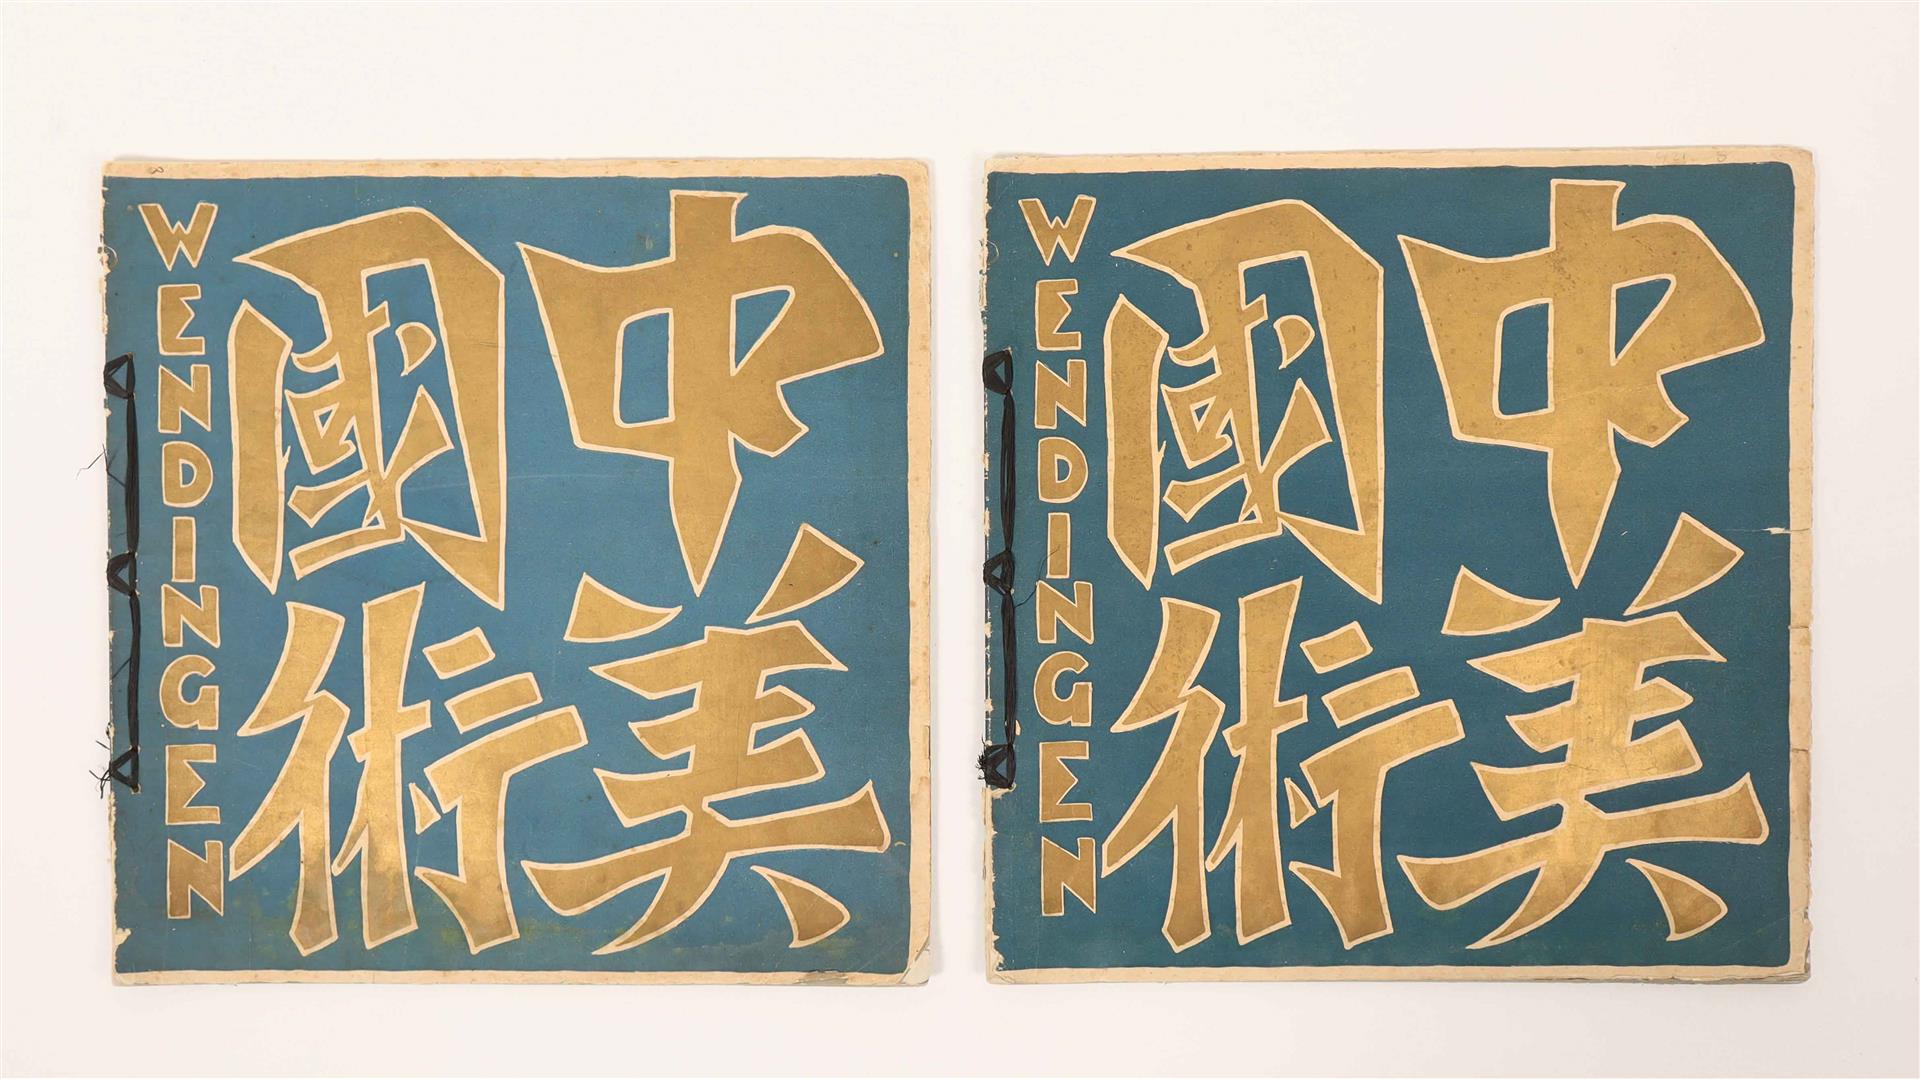 WENDINGEN
中國
美術
WENDINGEN
中國
美術